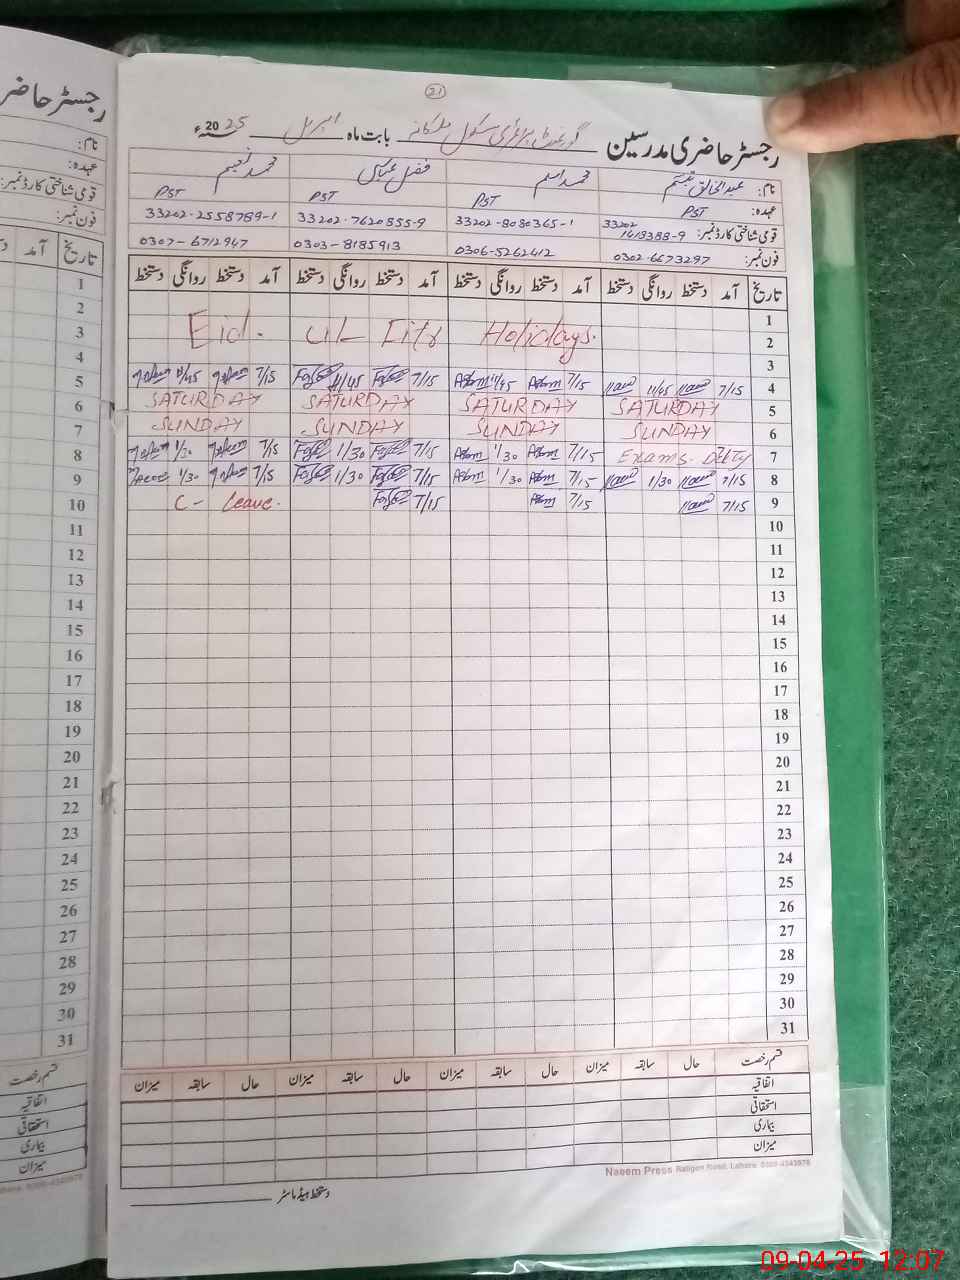 21
رجسٹر حاضری مدرسین گورنمنٹ پرائمری سکول بابت ماہ اپریل 2025ء
نام: عبدالخالق تبسم محمد اسلم فضل عباس محمد نعیم
عہدہ: PST PST PST PST
قومی شناختی کارڈ نمبر: 33202 1418388-9 33202-8080365-1 33202-7620855-9 33202-2558789-1
فون نمبر: 0302-6673297 0306-5262412 0303-8185913 0307-6712947
تاریخ آمد دستخط روانگی دستخط آمد دستخط روانگی دستخط آمد دستخط روانگی دستخط آمد دستخط روانگی دستخط
1
Eid. UL Fitr Holidays. 2
3
11/45 7/15 11/45 7/15 11/45 7/15 11/45 7/15 4
SATURDAY SATURDAY SATURDAY SATURDAY 5
SUNDAY SUNDAY SUNDAY SUNDAY 6
1/30 7/15 1/30 7/15 1/30 7/15 Exams. Duty 7
1/30 7/15 1/30 7/15 1/30 7/15 1/30 7/15 8
C- Leave. 7/15 7/15 7/15 9
10
11
12
13
14
15
16
17
18
19
20
21
22
23
24
25
26
27
28
29
30
31
قسم رخصت حال سابقہ میزان حال سابقہ میزان حال سابقہ میزان حال سابقہ میزان
اتفاقیہ
استحقاقی
بیماری
میزان
Naeem Press Ratigon Road, Lahore. 0300-4343978
دستخط ہیڈ ماسٹر
رجسٹر حاضر
نام:
عہدہ:
قومی شناختی کارڈ نمبر:
فون نمبر:
تاریخ آمد
1
2
3
4
5
6
7
8
9
10
11
12
13
14
15
16
17
18
19
20
21
22
23
24
25
26
27
28
29
30
31
قسم رخصت
اتفاقیہ
استحقاقی
بیماری
میزان
09-04-25 12:07